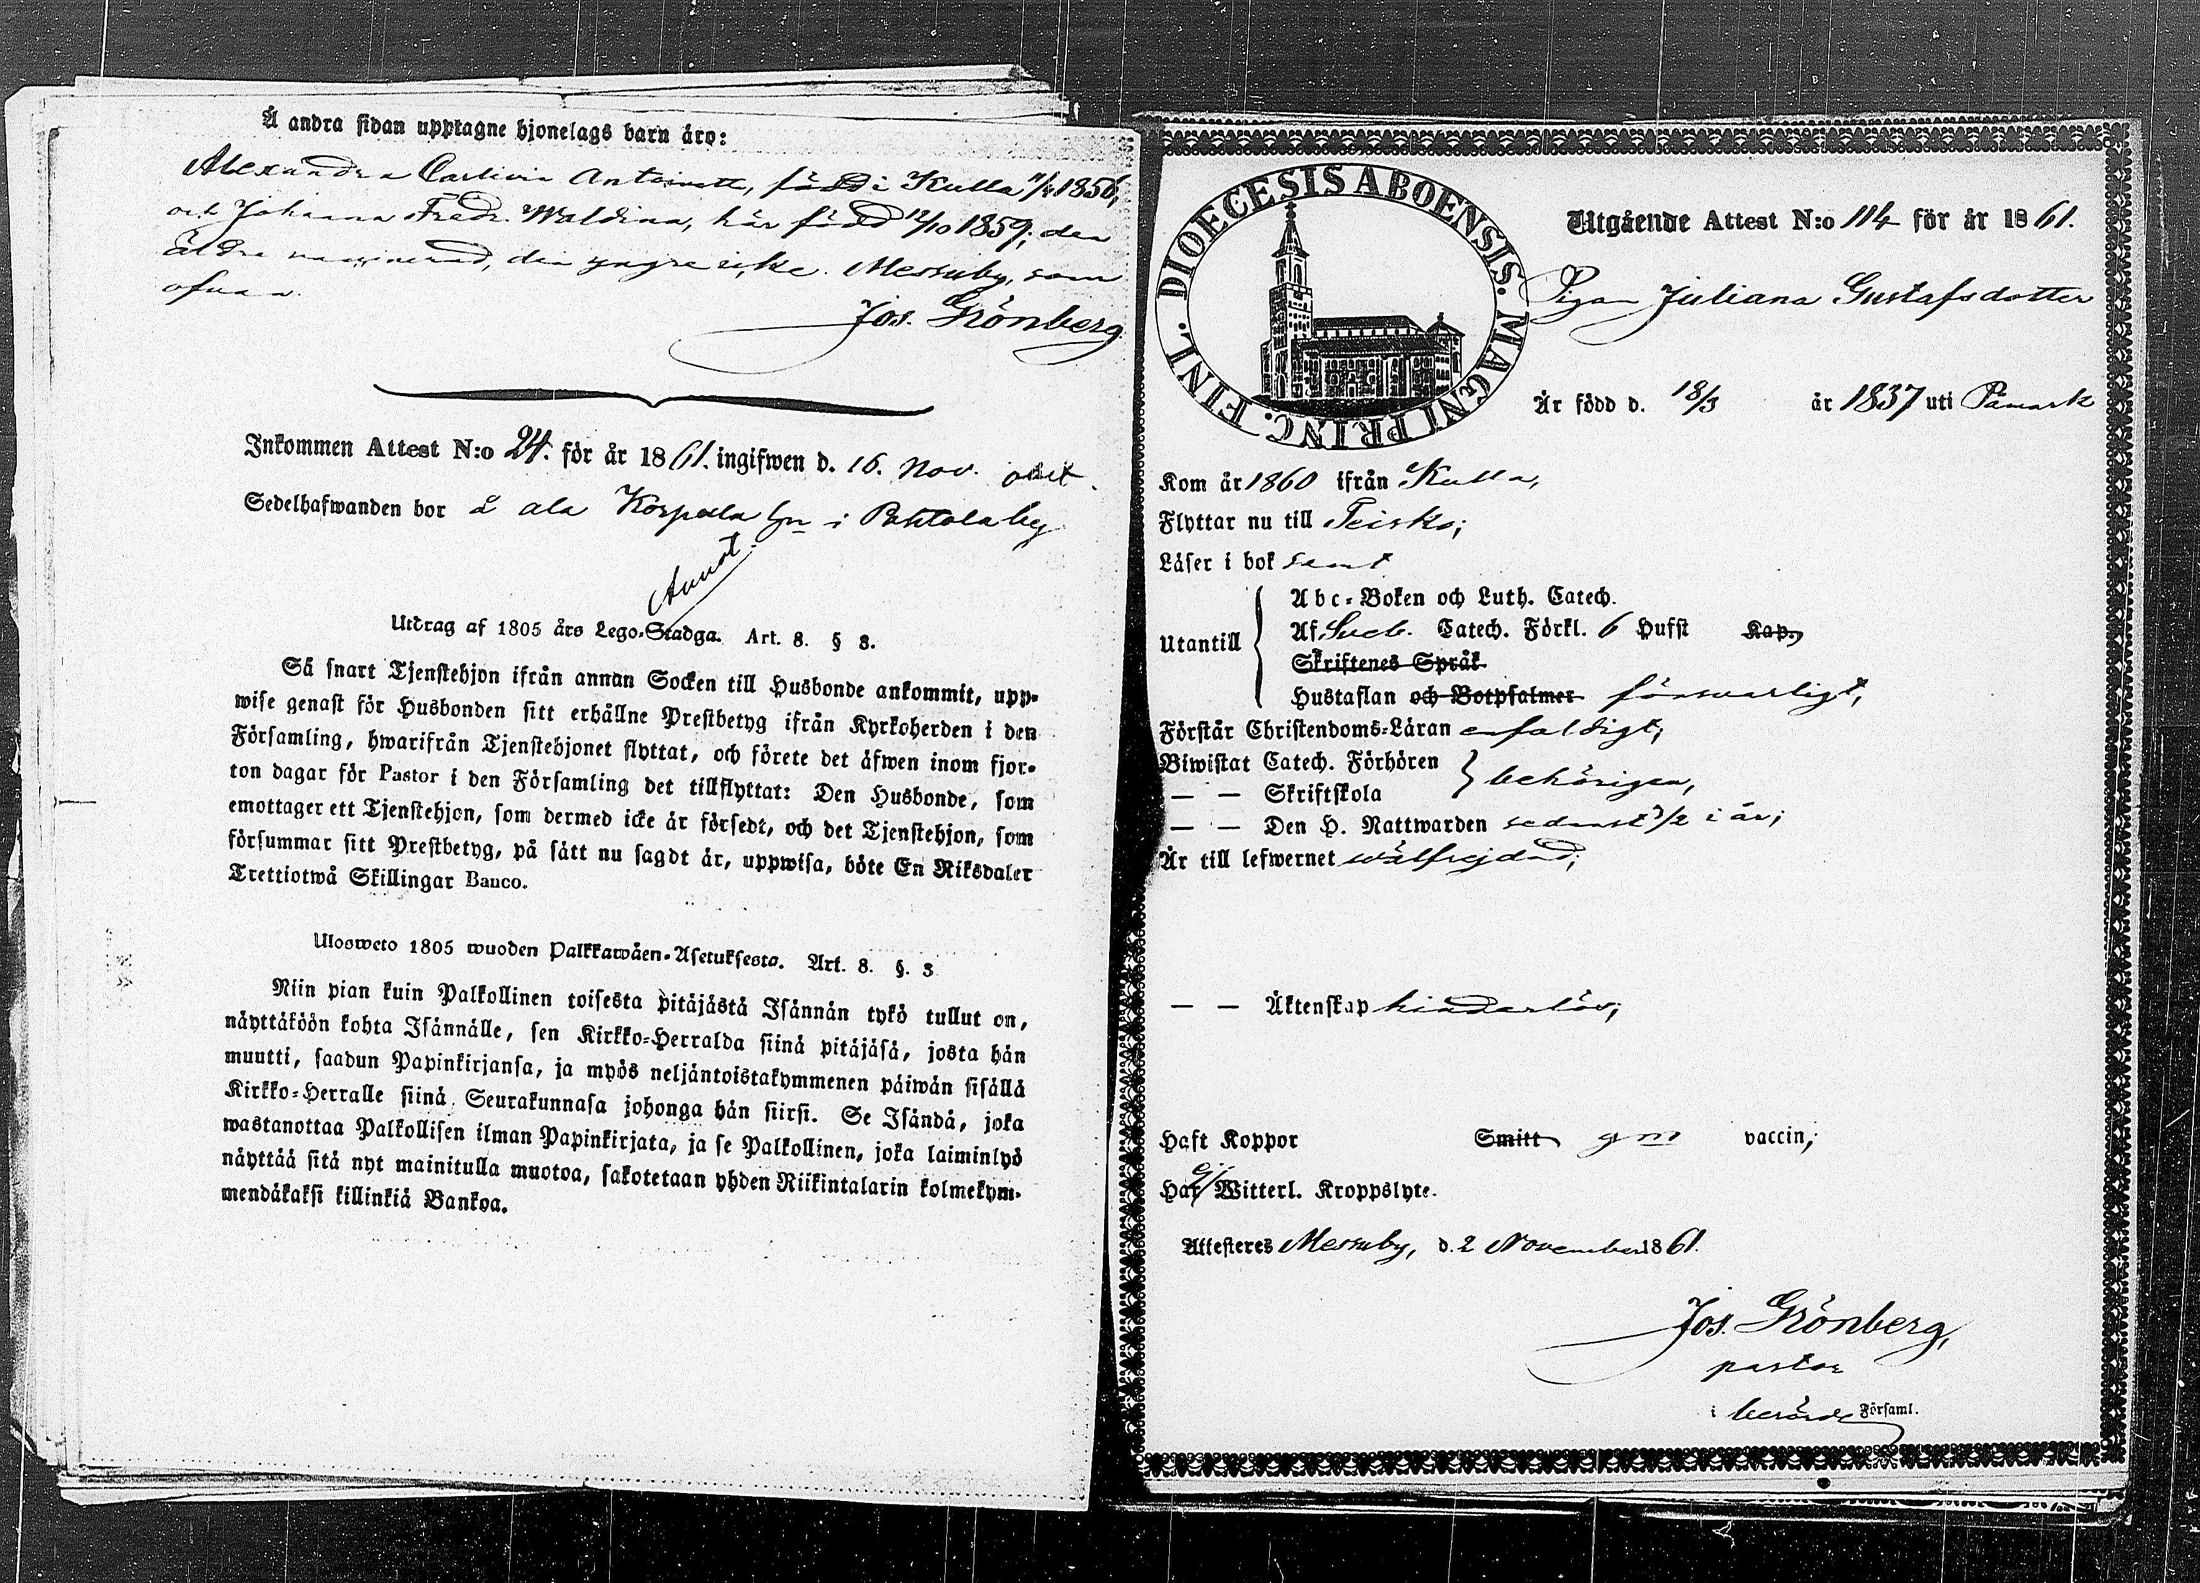 Å andra sidan upptagne hjonelags barn äro:
Alexandra Carlivia Antoinette, född i Kulla 11/4 1856,
och Johanna Fredr. Waldina, här född 12/10 1859; den
äldre vaccinerad, den yngre icke. Messuby, som
ofvan.
Jos. Grönberg
Inkommen Attest N:o 24. för år 1861. ingifwen d. 16. Nov.
Sedelhafwanden bor å ala Korpula hn i Pohtola by
Annot.
Utdrag af 1805 års Lego-Stadga. Art. 8. § 3.
Så snart Tjenstehjon ifrån annan Socken till Husbonde ankommit, upp-
wise genast för Husbonden sitt erhållne Prestbetyg ifrån Kyrkoherden i den
Församling, hwarifrån Tjenstehjonet flyttat, och förete det äfwen inom fjor-
ton dagar för Pastor i den Församling det tillflyttat: Den Husbonde, som
emottager ett Tjenstehjon, som dermed icke är försedt, och det Tjenstehjon, som
försummar sitt Prestbetyg, på sätt nu sagdt är, uppwisa, böte En Riksdaler
Trettiotwå Skillingar Banco.
Ulosweto 1805 wuoden Palkkawäen-Asetuksesta. Art. 8. §. 3
Niin pian kuin Palkollinen toisesta pitäjästä Isännän tykö tullut on,
näyttäköön kohta Isännälle, sen Kirkko-Herralda siinä pitäjäsä, josta hän
muutti, saadun Papinkirjansa, ja myös neljäntoistakymmenen päiwän sisällä
Kirkko-Herralle siinä Seurakunnasa johonga hän siirsi. Se Isändä, joka
wastanottaa Palkollisen ilman Papinkirjata, ja se Palkollinen, joka laiminlyö
näyttää sitä nyt mainitulla muotoa, sakotetaan yhden Riikintalarin kolmekym-
mendäkaksi killinkiä Bankoa.
DIOECESIS ABOENSIS. MAGNI PRINC. FINL.
Utgående Attest N:o 114 för år 1861.
Pigan Juliana Gustafsdotter
Är född d. 18/3 år 1837 uti Påmark
Kom år 1860 ifrån Kulla,
Flyttar nu till Teisko;
Läser i bok samt
Utantill
Abc-Boken och Luth. Catech.
Af Sveb. Catech. Förkl. 6 Hufst Kap.,
Skriftenes Språk
Hustaflan och Botpsalmer försvarligt,
Förstår Christendoms-Läran enfaldigt;
Biwistat Catech. Förhören
— — Skriftskola behörigen,
— — Den H. Nattwarden sednast 3/2 i år;
Är till lefwernet wälfrejdad;
— — Äktenskap hinderlös;
Haft Koppor Smitt gm vaccin;
Har ej Witterl. Kroppslyte.
Attesteres Messuby, d. 2 November 1861.
Jos. Grönberg,
pastor
i berörde Församl.